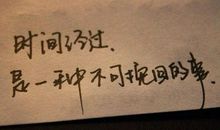 时间经过.
是一种不可挽回的事.